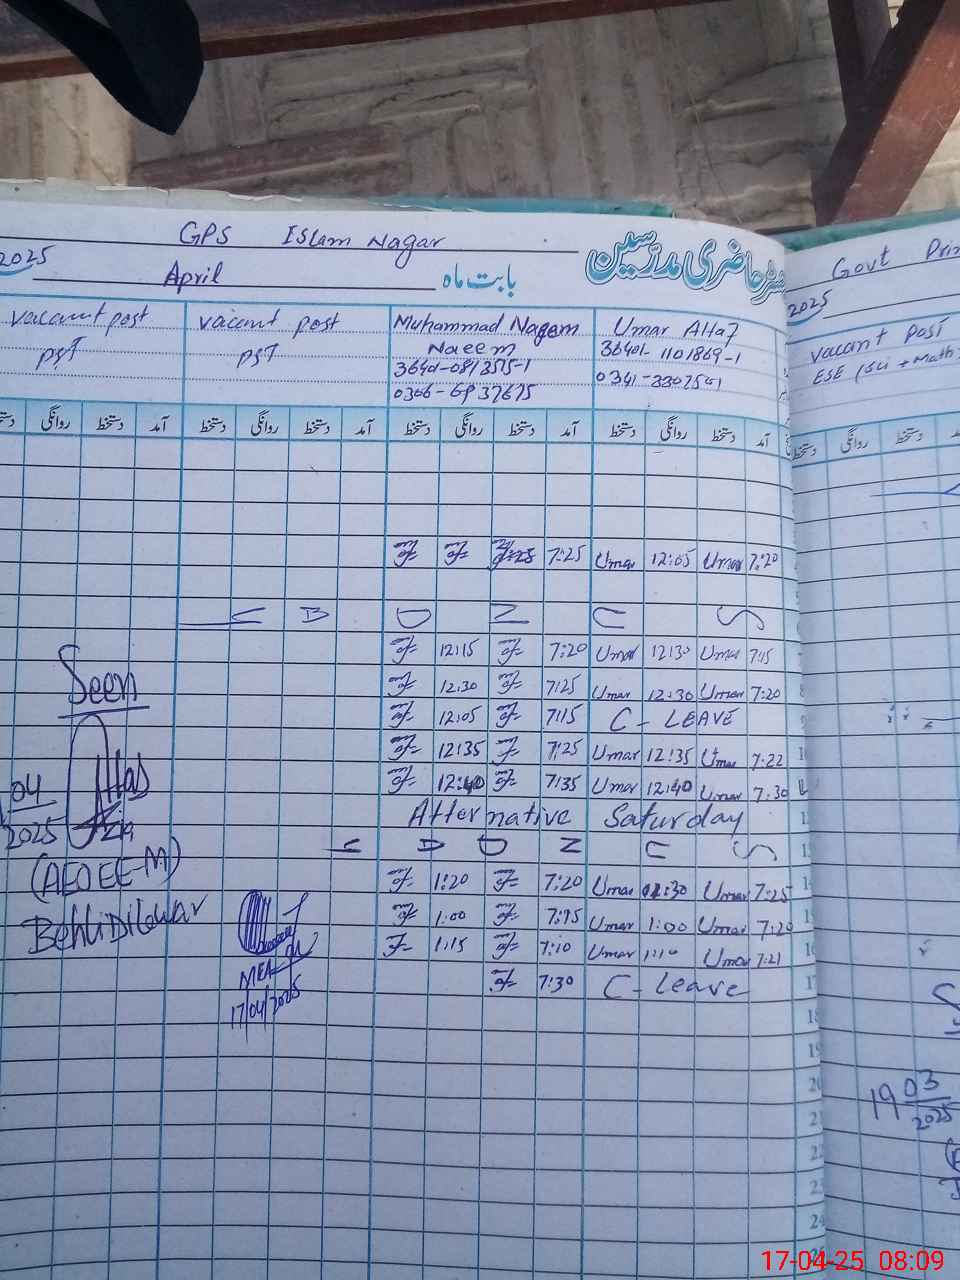 GPS Islam Nagar
رجسٹر حاضری مدرسین
2025
April بابت ماہ
vacant post
PST
vacant post
PST
Muhammad Nagem
Naeem
36401-0813515-1
0306-6937675
Umar Altaf
36401-1101869-1
دستخط روانگی دستخط آمد دستخط روانگی دستخط آمد دستخط روانگی دستخط آمد دستخط روانگی دستخط آمد
7:25 Umar 12:05 Umar 7:20
S U N D
12:15 7:20 Umar 12:30 Umar 7:15
12:30 7:25 Umar 12:30 Umar 7:20
12:05 7:15 C - LEAVE
12:35 7:25 Umar 12:35 Umar 7:22
12:40 7:35 Umar 12:40 Umar 7:30
Alternative Saturday
S U N D
1:20 7:20 Umar Umar 7:25
1:00 7:15 Umar 1:00 Umar 7:20
1:15 7:10 Umar 1:10 Umar 7:21
7:30 C - Leave
17
18
19
20
21
22
23
24
Seen
04
2025
(AEO EE-M)
Behli Dilawar
MEA
17/04/2025
Govt
2025
vacant Post
ESE (Sci + Math)
دستخط روانگی دستخط
19 03
2025
17-04-25 08:09